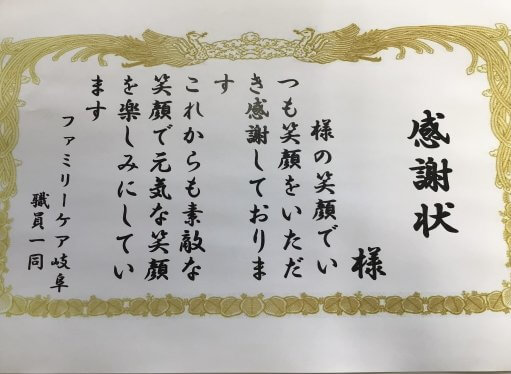 感謝状
様
様の笑顔でい
つも笑顔をいただ
き感謝しておりま
す
これからも素敵な
笑顔で元気な笑顔
を楽しみにしてい
ます
ファミリーケア岐阜
職員一同